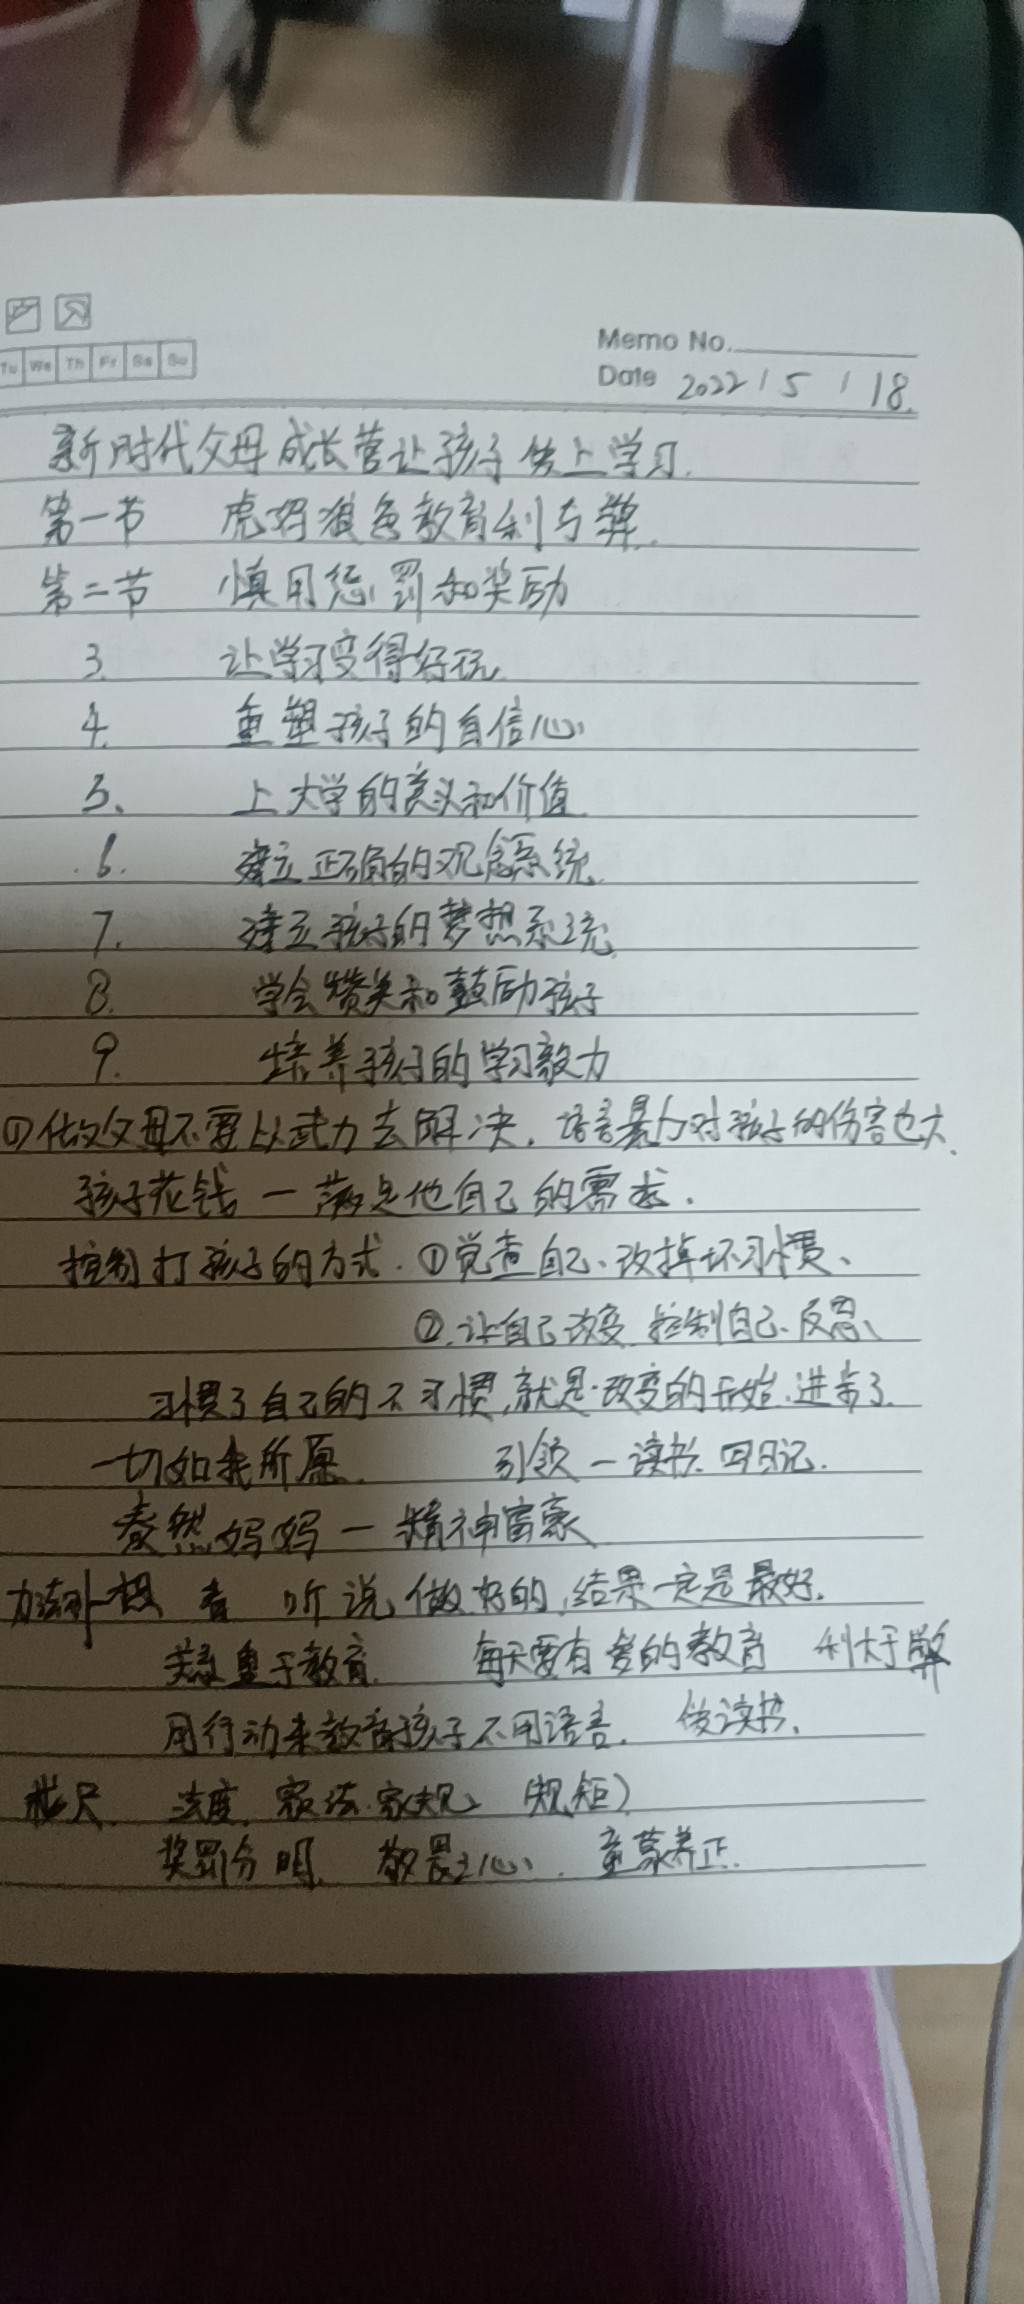 Tu We Th Fr Sa Su
Memo No.
Date 2022 / 5 / 18.
新时代父母成长营让孩子爱上学习.
第一节 虎妈狼爸教育利与弊.
第二节 慎用惩罚和奖励
3. 让学习变得好玩.
4. 重塑孩子的自信心.
5、 上大学的意义和价值.
6. 建立正确的观念系统.
7. 建立孩子的梦想系统.
8. 学会赞美和鼓励孩子
9. 培养孩子的学习毅力
①做父母不要以武力去解决，语言暴力对孩子的伤害也大.
孩子花钱一满足他自己的需求.
控制打孩子的方式.①觉查自己、改掉坏习惯、
②.让自己改变.控制自己.反思、
习惯了自己的不习惯,就是改变的开始.进步了.
一切如我所愿. 引领一读书.写日记.
泰然妈妈一精神富豪
想 看 听 说,做.好的,结果一定是最好.
重于教育. 每天要有爱的教育 利大于弊
用行动来教育孩子不用语言. 读书.
戒尺. 法度.家法.家规 (规矩)
奖罚分明. 敬畏之心、.童蒙养正.